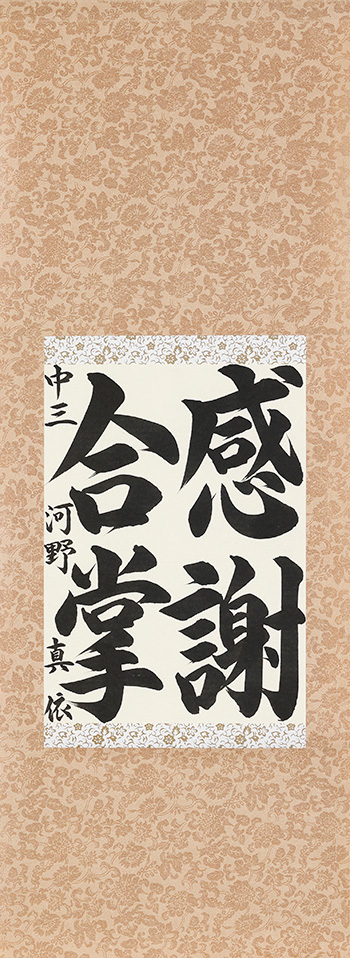 感謝
合掌
中三 河野 真依